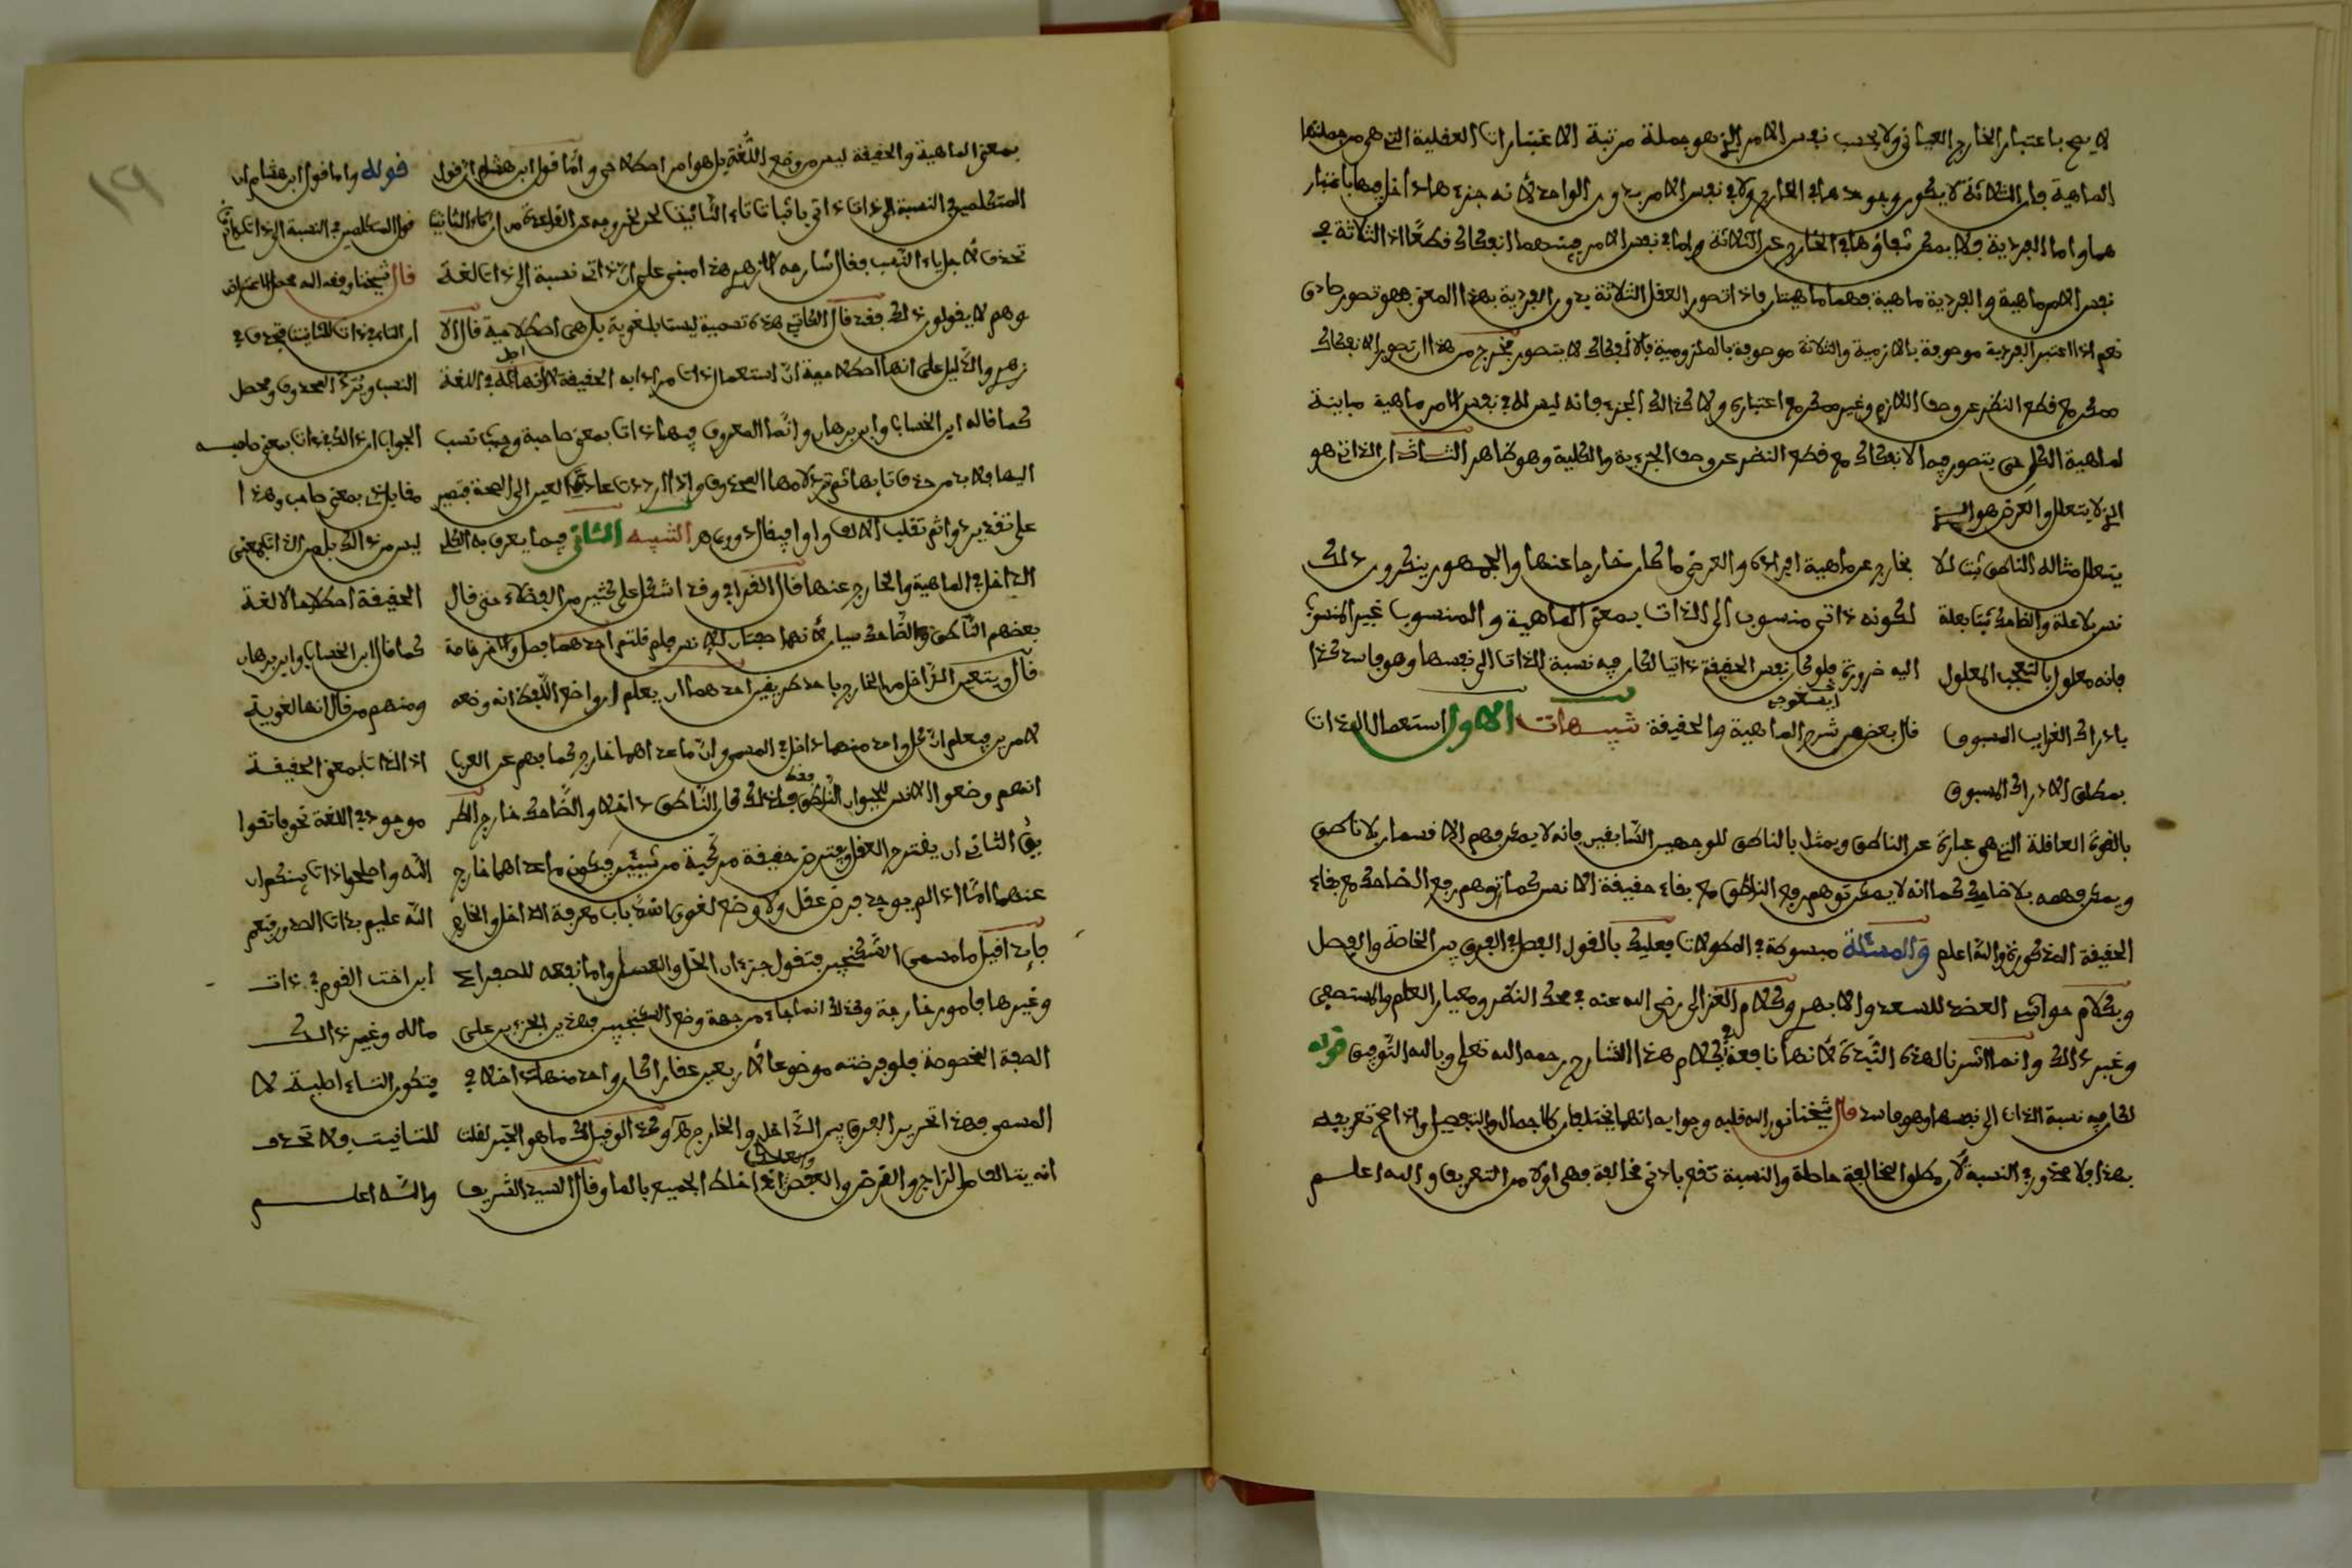 لا يصح باعتبار الخارج العياني ولا بحسب نفس الامر الذي هو جملة مرتبة الاعتبارات العقلية التي هي من جملتها
الماهية فان الثلاثة لا يكون وجودها في الخارج ولا في نفس الامر بدون الواحد لأنه جزءها داخل فيها باعتبار
هما واما الفردية فلا يمكن بقاؤها في الخارج عن الثلاثة واما في نفس الامر فبينهما انفكاك قطعًا اذ الثلاثة في
نفس الامر ماهية والفردية ماهية فهما ماهيتان فاذا تصور العقل الثلاثة بدون الفردية بهذا المعنى فهو تصور صادق
نعم اذا اعتبر الفردية موصوفة بالازمية والثلاثة موصوفة بالملزومية فالانفكاك لا يتصور فخرج من هذا ان تصور الانفكاك
ممكن مع قطع النظر عن وصف اللازم وغير ممكن مع اعتباره ولا كذالك الجزء فانه ليس له في نفس الامر ماهية مباينة
لماهية الكل حتى يتصور فيه الانفكاك مع قطع النضر عن وصف الجزءية والكلية وهو ظاهر الثالث ان الذاتي هو
الذي لا يتعلل والعرض هو الذي
يتعلل مثاله الناطق ثبت للا
نسن بلا علة والضاحك ثبت بعلة
فانه معلول بالتعجب المعلول
بادراك الغرايب المسبوق
بمطلق الادراك المسبوق
بخارج عن ماهية افراده والعرضي ما كان خارجا عنها والجمهور ينكرون ذلك
لكونه ذاتي منسوب الى الذات بمعنى الماهية والمنسوب غير المنسوب
اليه ضرورة فلو كان نفس الحقيقة ذاتيا لكان فيه نسبة الذات الى نفسها وهو فاسد كذا
قال بعضهم شرح الماهية والحقيقة تنبيهات الاول استعمال الذات
بالقوة العاقلة التي هي عبارة عن الناطق ويمثل بالناطق للوجهين السّابقين فانه لا يمكن فهم الانسان بلا ناطق
ويمكن فهمه بلا ضاحك كما انه لا يمكن توهم رفع الناطق مع بقاء حقيقة الانسن كما توهم رفع الضاحك مع بقاء
الحقيقة المذكورة والله اعلم والمسئلة مبسوطة في المطولات فعليك بالقول الفصل في الفرق بين الخاصة والفصل
وبكلام حواشي العضد للسعد والابهري وكلام الغزالي رضي الله عنه في محك النظر ومعيار العلم والمستصفى
وغير ذالك وانما اشرنا لهذه النّبذة لأنها نافعة في كلام هذا الشارح رحمه الله تعلى وبالله التّوفيق قوله
لكان فيه نسبة الذات الى نفسها وهو فاسد قال شيخنا نور الله قلبه وجوابه انهما يختلفان كالاجمال والتفصيل واذا صح تعريفه
بهذا فلا محذور في النسبة لأن مطلق المخالفة حاصلة والنسبة تقع بادنى مخالفة فهي اولا من التعريف والله اعلم
١٩
بمعنى الماهية والحقيقة ليس من وضع اللّغة بل هو امر اصطلاحي وأمّا قول ابن هشام انّ قول
المتكلمين في النسبة الى ذات ذاتي باثبات تاء التّأنيث لحن لخروجه عن القاعدة من ان تاء التأنيث
تحذف لأجل ياء النّسب فقال شارحه الازهري هذا مبني على انّ ذاتي نسبة الى ذات لغة
وهم لا يقولون ذلك فقد قال الكاتي هذه تسمية ليست بلغوية بل هي اصطلاحية قال الا
زهري والدّليل على انها اصطلاحية انّ استعمال ذات مرادا به الحقيقة لا اصل له في اللغة
كما قاله ابن الخشاب وابن برهان وانّما المعروف فيها ذات بمعنى صاحبة وحيث نسب
اليها فلا بد من حذف تائها ثم ترد لامها المحذوف واذا ارددت عادت العين الى الصحة فتصير
على تقدير ذوا ثم تقلب الالف واوا فيقال ذووي هـ التنبيه الثاني فيما يعرف به الكلي
الداخل في الماهية والخارج عنها قال القرافي وقد اشكل على كثير من الفضلاء حتى قال
بعضهم النّاطق والضّاحك سيان لأنهما صفتان للانسن فلم قلتم احدهما فصل والاخر خاصة
قال ويتعين الدّاخل من الخارج باحد طريقين احدهما ان يعلم ان واضع اللّفظ انه وضعه
لامرين فيعلم انّ كل واحد منهما داخل في المسمى وانّ ما عداهما خارج كما فهم عن العرب
انهم وضعوا الانسن للحيوان النّاطق فقط فلذلك كان النّاطق داخلا والضّاحك خارج الطر
يق الثاني ان يقترح العقل ويفترض حقيقة مركّبة من شيئين فيكون ما عداهما خارج
عنهما امّا اذا لم يوجد فرض عقل ولا وضع لغوي انسدّ باب معرفة الداخل والخارج
فاذا قيل ما مسمى السّكنجبين فتقول جزءان الخل والعسل واما نفعه للصفراء
وغيرها فامور خارجة وكذلك انما جاء من جهة وضع السكنجبين فهذين الجزءين على
الصفة المخصوصة فلو فرضته موضوعا لأربعين عقارا كان واحد منها داخلا في
المسمى فهذا تحرير الفرق بين الدّاخل والخارج هـ وكذا لو قيل لك ما هو الحبر لقلت
انه يتالف من الزاج والقرض والعفص اذا خلط الجميع بالماء وقال السيد الشريف
قوله واما قول ابن هشام ان
قول المتكلمين في النسبة الى ذات ذاتي
قال شيخنا وفقه الله محصل الاعتراض
ان التاء في ذات للتانيث فتحذف في
النسب وتردّ المحذوف ومحصل
الجواب ان ذالك في ذات بمعنى صاحبه
مقابل ذي بمعنى صاحب وهذا
ليس من ذالك بل من الذات بمعنى
الحقيقة اصطلاحا لا لغة
كما قال ابن الخشاب وابن برهان
ومنهم من قال انها لغوية
اذ الذات بمعنى الحقيقة
موجود في اللغة نحو فاتقوا
الله واصلحوا ذات بينكم ان
الله عليم بذات الصدور فنعم
ابن اخت القوم في ذات
ماله وغير ذالك
فتكون التاء اصلية لا
للتانيث فلا تحذف
والله اعلم